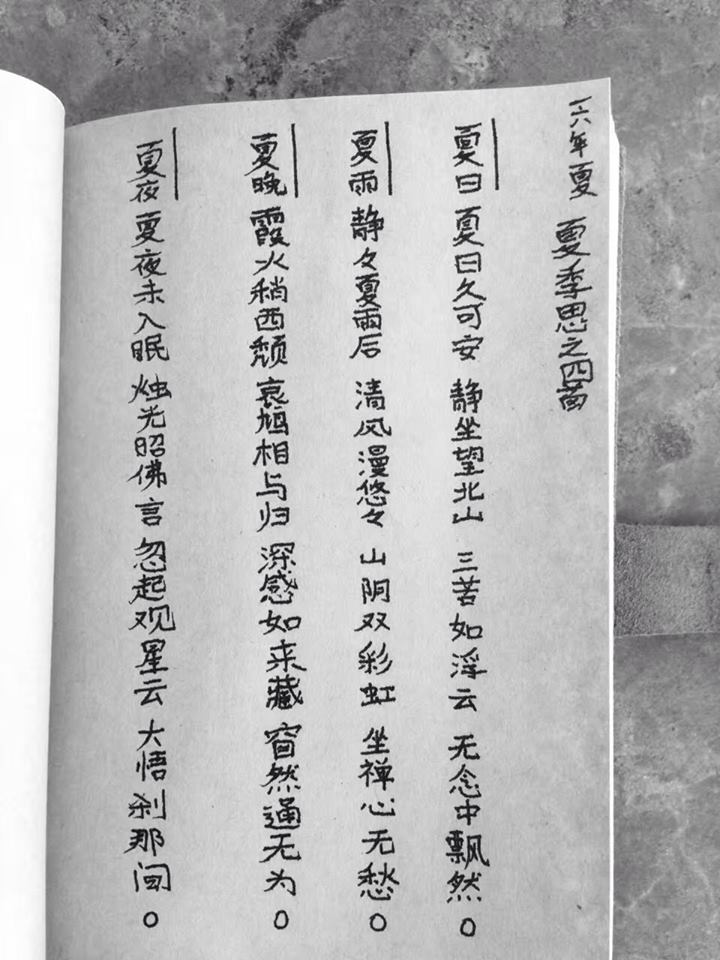 一六年夏 夏季思之四首
夏日 夏日久可安 静坐望北山 三苦如浮云 无念中飘然。
夏雨 静々夏雨后 清风漫悠々 山阴双彩虹 坐禅心无愁。
夏晚 霞火稍西颓 哀鸠相与归 深感如来藏 窅然通无为。
夏夜 夏夜未入眠 烛光昭佛言 忽起观星云 大悟刹那间。